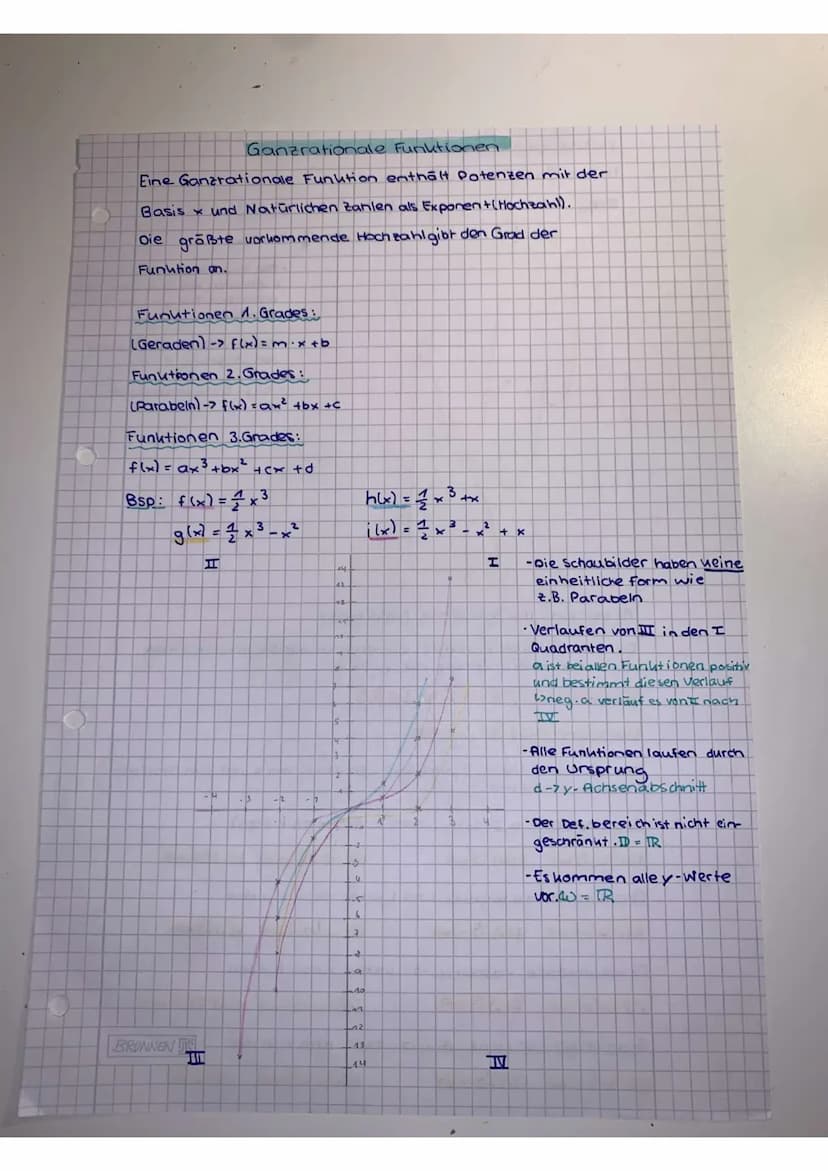 Ganzrationale Funktionen
Eine Ganzrationale Funktion enthält Potenzen mit der
Basis x und Natürlichen Zahlen als Exponent (Hochzahl).
Die größte vorkommende Hochzahl gibt den Grad der
Funktion an.
Funktionen 1. Grades:
(Geraden) -> f(x) = m · x + b
Funktionen 2. Grades:
(Parabeln) -> f(x) = ax² + bx + c
Funktionen 3. Grades:
f(x) = ax³ + bx² + cx + d
Bsp: f(x) = 1/2 x³
h(x) = 1/2 x³ + x
g(x) = 1/2 x³ - x²
i(x) = 1/2 x³ - x² + x
II
I
- Die Schaubilder haben keine
einheitliche Form wie
z.B. Parabeln
- Verlaufen von III in den I
Quadranten.
a ist bei allen Funktionen positiv
und bestimmt diesen Verlauf
↳ neg. a verläuft es von II nach
IV
- Alle Funktionen laufen durch
den Ursprung
d -> y-Achsenabschnitt
- Der Def.bereich ist nicht ein-
geschränkt. D = ℝ
- Es kommen alle y-Werte
vor. W = ℝ
-4 -3 -2 -1 1 2 3 4
BRUNNEN
III
IV